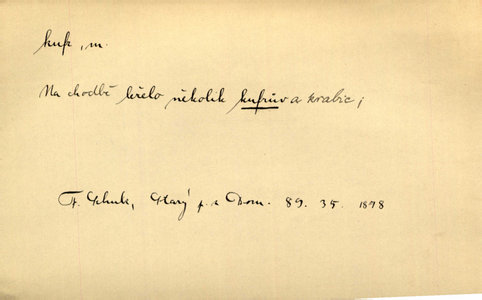 kufr, m.
Na chodbě leželo několik kufrův a krabic;
F. Schulz, Starý p. z Dom. 89. 35. 1878